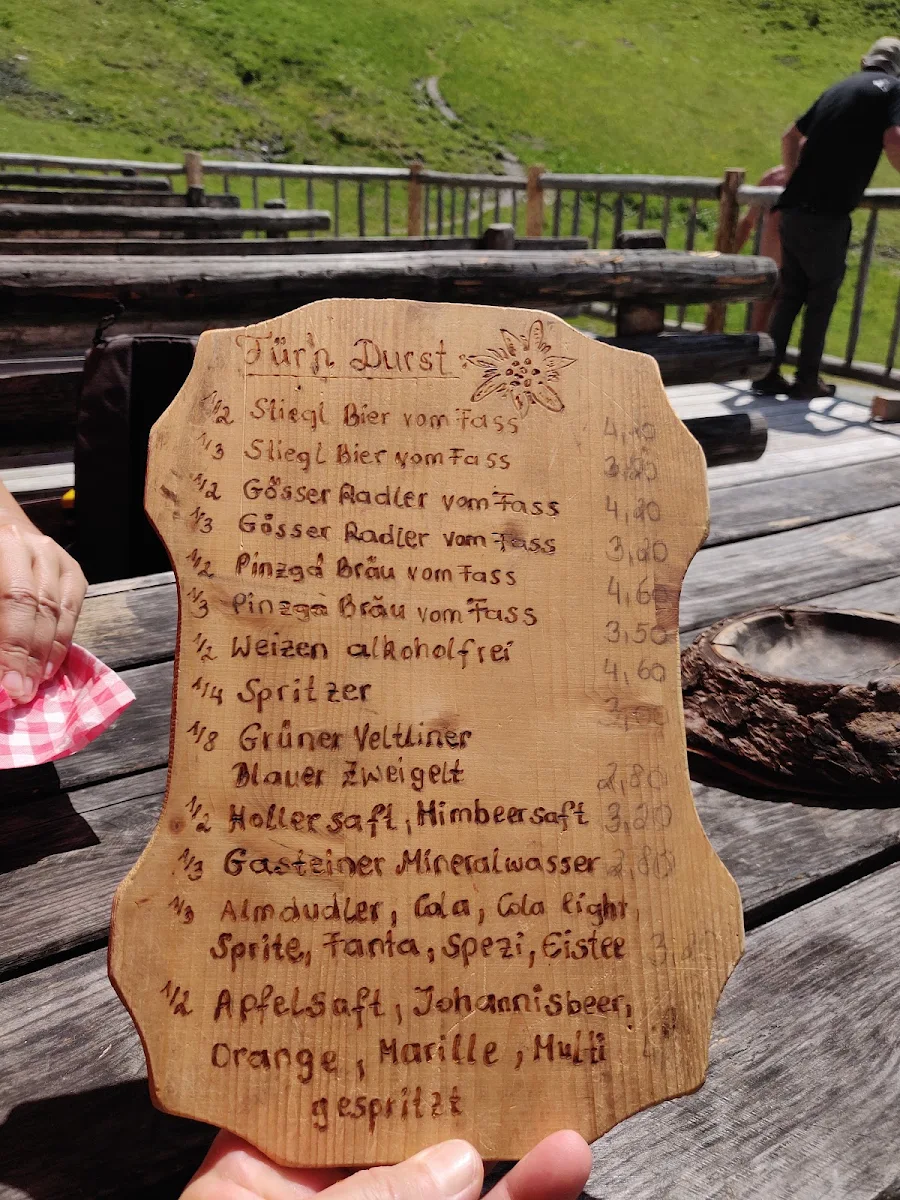 Für'n Durst
1/2 Stiegl Bier vom Fass
1/3 Stiegl Bier vom Fass
1/2 Gösser Radler vom Fass 4,20
1/3 Gösser Radler vom Fass 3,20
1/2 Pinzga Bräu vom Fass 4,60
1/3 Pinzga Bräu vom Fass 3,50
1/2 Weizen alkoholfrei 4,60
1/4 Spritzer
1/8 Grüner Veltliner
Blauer Zweigelt 2,80
1/2 Hollersaft, Himbeersaft 3,20
1/3 Gasteiner Mineralwasser 2,80
1/3 Almdudler, Cola, Cola light,
Sprite, Fanta, Spezi, Eistee
1/2 Apfelsaft, Johannisbeer,
Orange, Marille, Multi
gespritzt